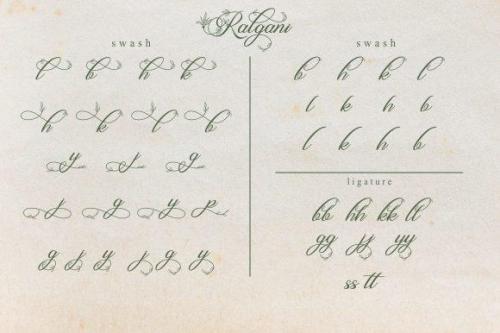 Ralgani
swash
l b h k
h k l b
y j g
j g y
g j y j g y
swash
b h k l
l k h b
l k h b
ligature
bb hh kk ll
gg jj yy
ss tt